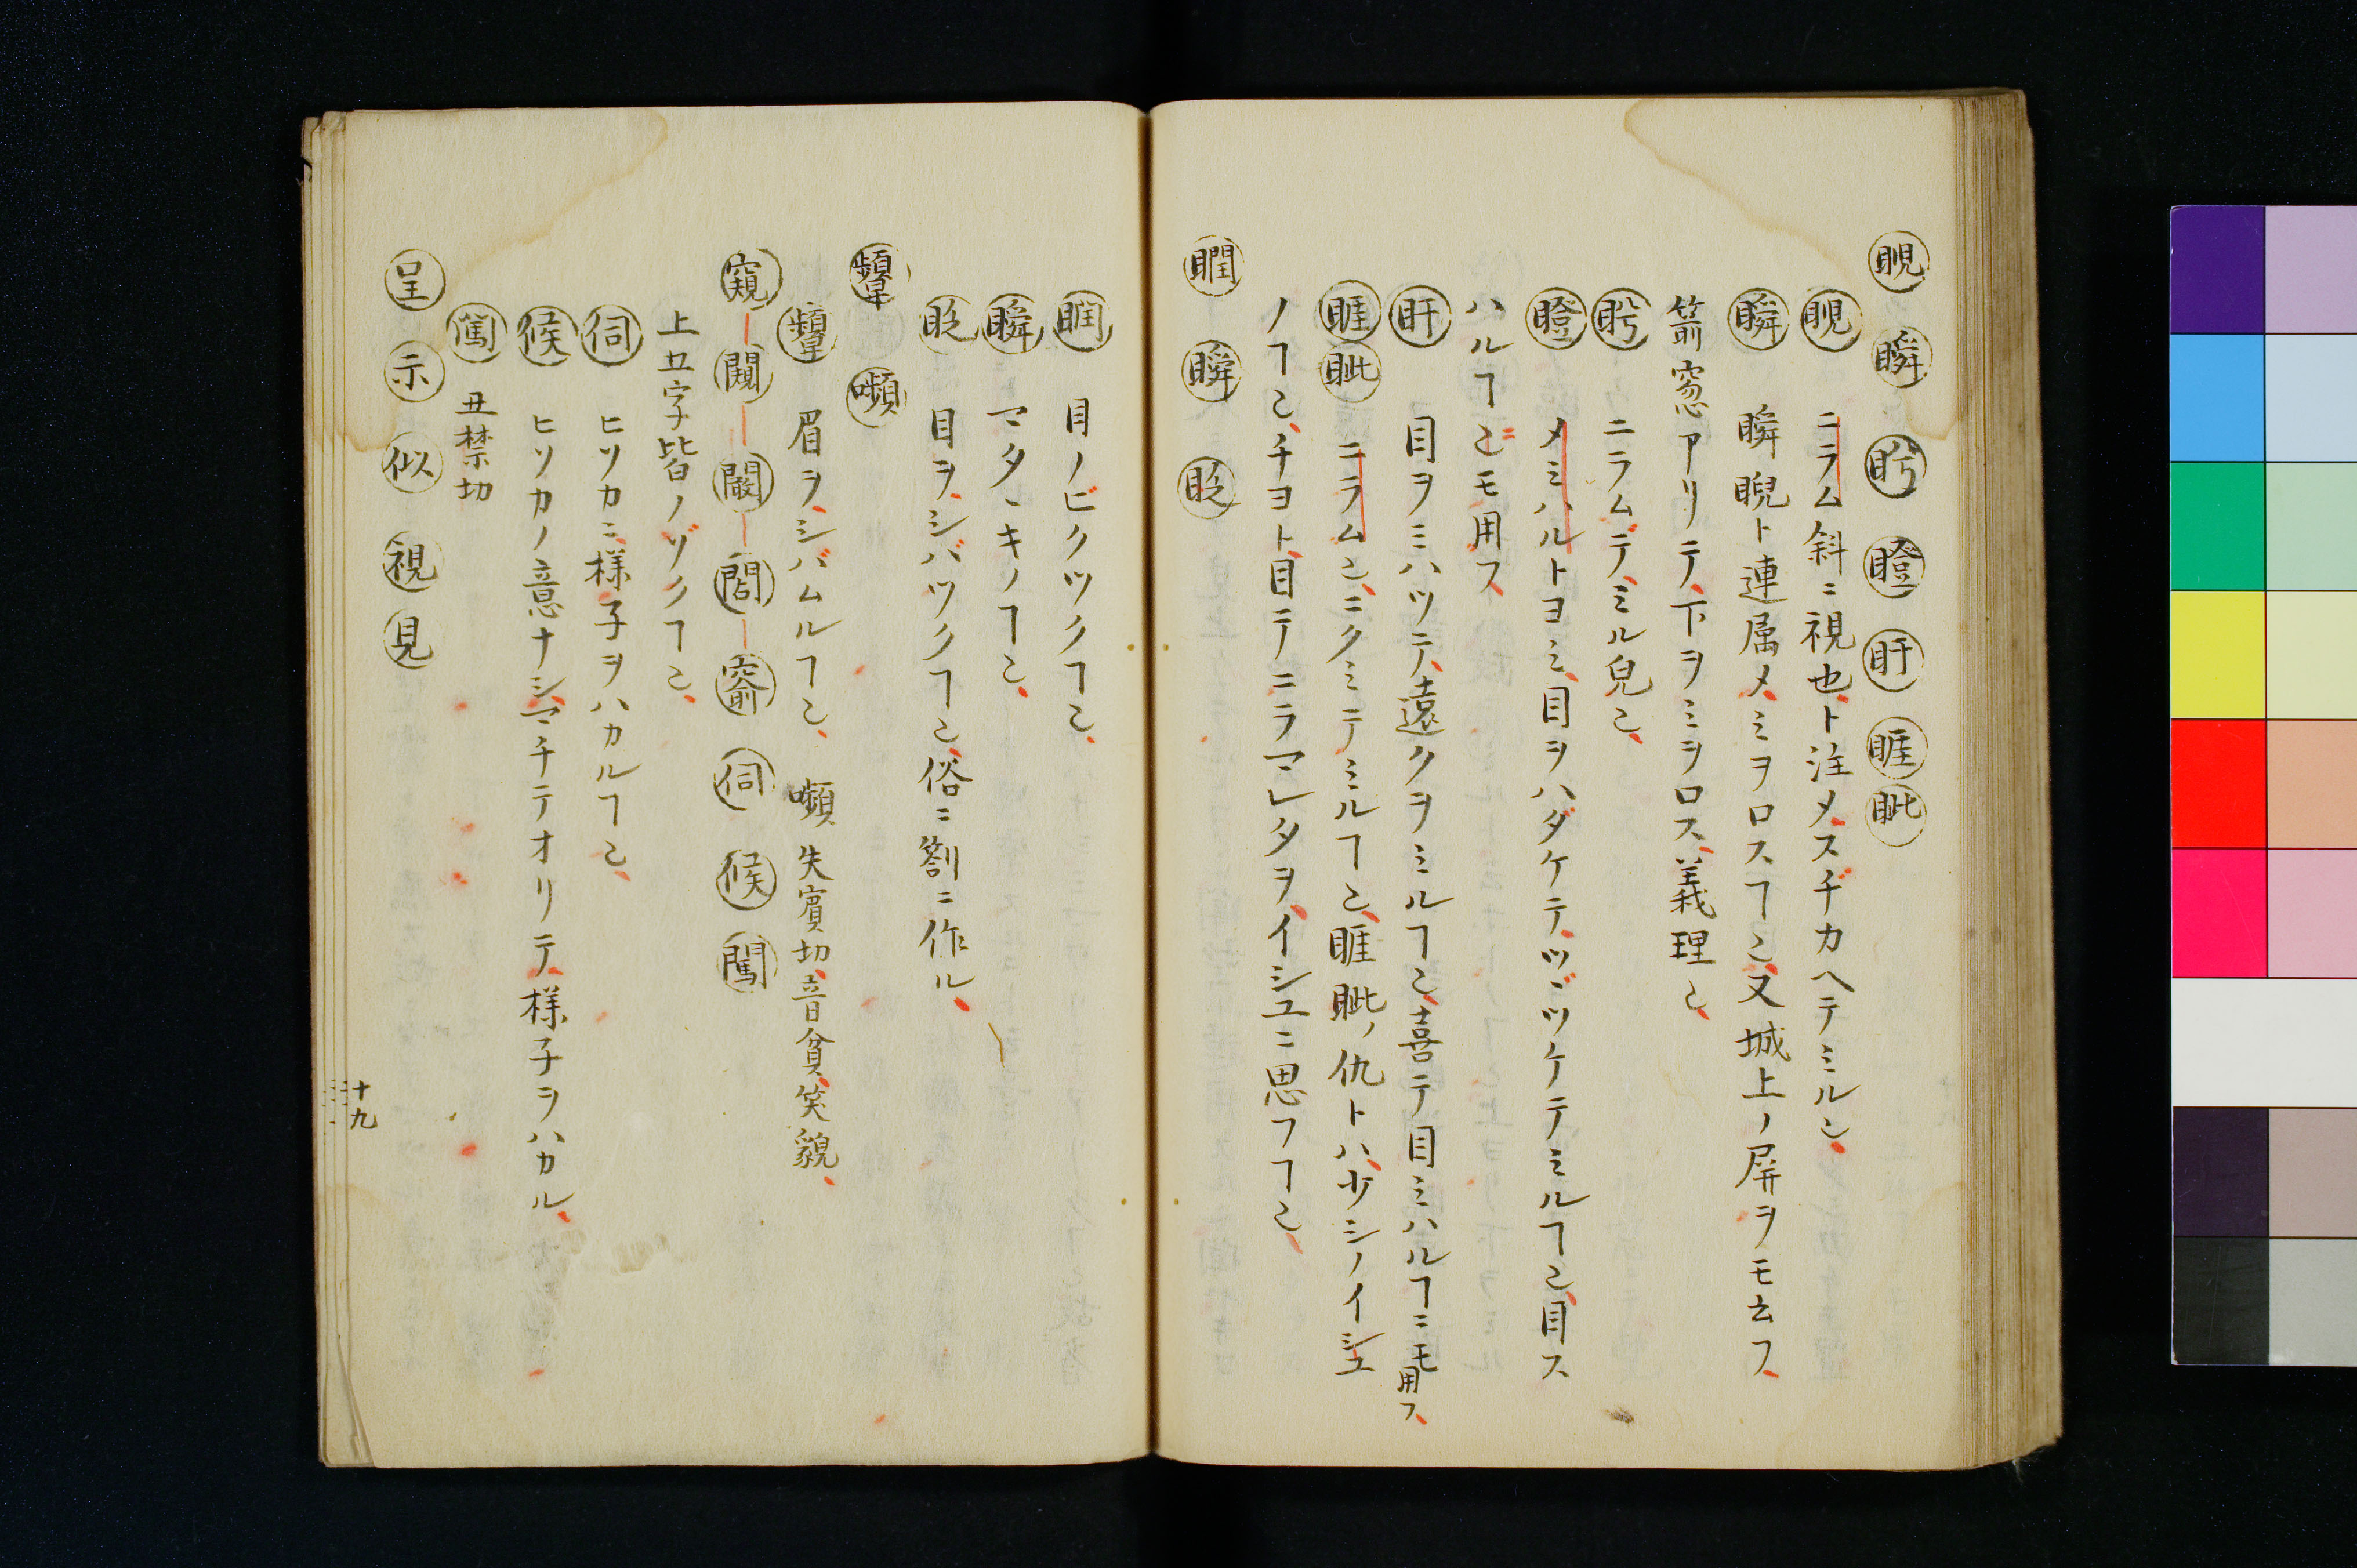 睨 瞬 盻 瞪 盱 睚眦
睨 ニラム斜ニ視也ト注メスヂカヘテミル也
瞬 瞬睨ト連属メミヲロスヿ也又城上ノ屏ヲモ云フ
箭窓アリテ下ヲミヲロス義理也
盻 ニラムデミル皃也
瞪 メミハルトヨミ目ヲハダケテツヾツケテミルヿ也目ス
ハルヿ也モ用フ
盱 目ヲミハツテ遠クヲミルヿ也喜テ目ミハルヿニモ用フ
睚眦 ニラム也ニクミテミルヿ也睚眦ノ仇トハ少シノイシユ
ノヿ也チヨト目テニラマレタヲイシユニ思フヿ也
瞤 瞬 眨
瞤 目ノビクツクヿ也
瞬 マタヽキノヿ也
眨 目ヲシバツクヿ也俗ニ劄ニ作ル
顰 嚬
顰 眉ヲシバムルヿ也 嚬 失賓切音貧笑貌
窺 闚 闞 閻 窬 伺 候 闖
上五字皆ノゾクヿ也
伺 ヒソカニ様子ヲハカルヿ也
候 ヒソカノ意ナシマチテオリテ様子ヲハカル
闖 丑禁切
呈 示 似 視 見
十九